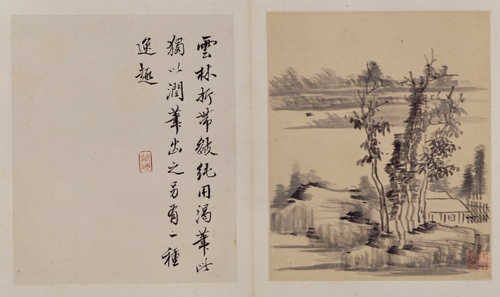 雲林折帶皴純用渴筆此
獨以潤筆出之另有一種
逸趣